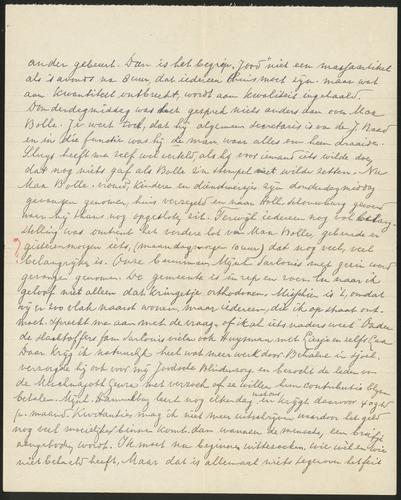 ander gebeurt. Dan is het begrip "Jood" niet een massaartikel
als 's avonds na 8 uur, dat iedereen thuis moet zijn. maar wat
aan kwantiteit ontbreekt, wordt aan kwaliteit ingehaald.
Donderdagmiddag was het gesprek niets anders dan over Max
Bolle. Je weet toch, dat hij algemeen secretaris is van de J. Raad
en in die functie was hij de man, waar alles om heen draaide.
Sluys heeft me zelf wel verteld, als hij voor iemand iets wilde doen,
dat nog niets gaf als Bolle zijn stempel niet wilde zetten. Nu
Max Bolle, vrouw, kinderen en dienstmeisje zijn donderdagmiddag
gevangen genomen, huis verzegeld en naar Holl. Schouwburg gevoerd
waar hij thans nog opgesloten zit. Terwijl iedereen nog vol belang-
stelling was omtrent het verdere lot van Max Bolle, gebeurde er
gisterenmorgen iets, (maandagmorgen 10 uur) dat nog veel, veel
belangrijker is. Onze Mijnh. Sarlouis met gezin werd
gevangen genomen. De gemeente is in rep en roer. En maar ik
geloof niet alleen dat kringetje orthodoxen. Misschien is 't, omdat
wij er zoo vlak naast wonen, maar iedereen, die ik op straat ont-
moet, spreekt me aan met de vraag, of ik al iets naders weet.
de slachtoffers fam Sarlouis vielen ook Huysman met
Daar krijg ik natuurlijk heel wat meer werk door. Behalve in sjoel,
verzorgde hij ook voor mij Joodsche Blindenzorg en bezocht de leden van
de met verzoek of ze willen hun contributie
betalen. Mijnh. leert nog elken dag en krijgt daarvoor
p. maand. Kwitanties mag ik niet meer uitschrijven, waardoor het geld
nog veel moeilijker binnen komt, dan wanneer de menschen, een briefje
aangeboden wordt. Ik moet nu beginnen uittezoeken, wie wel en wie
niet betaald heeft, Maar dat is allemaal niets tegenover het feit